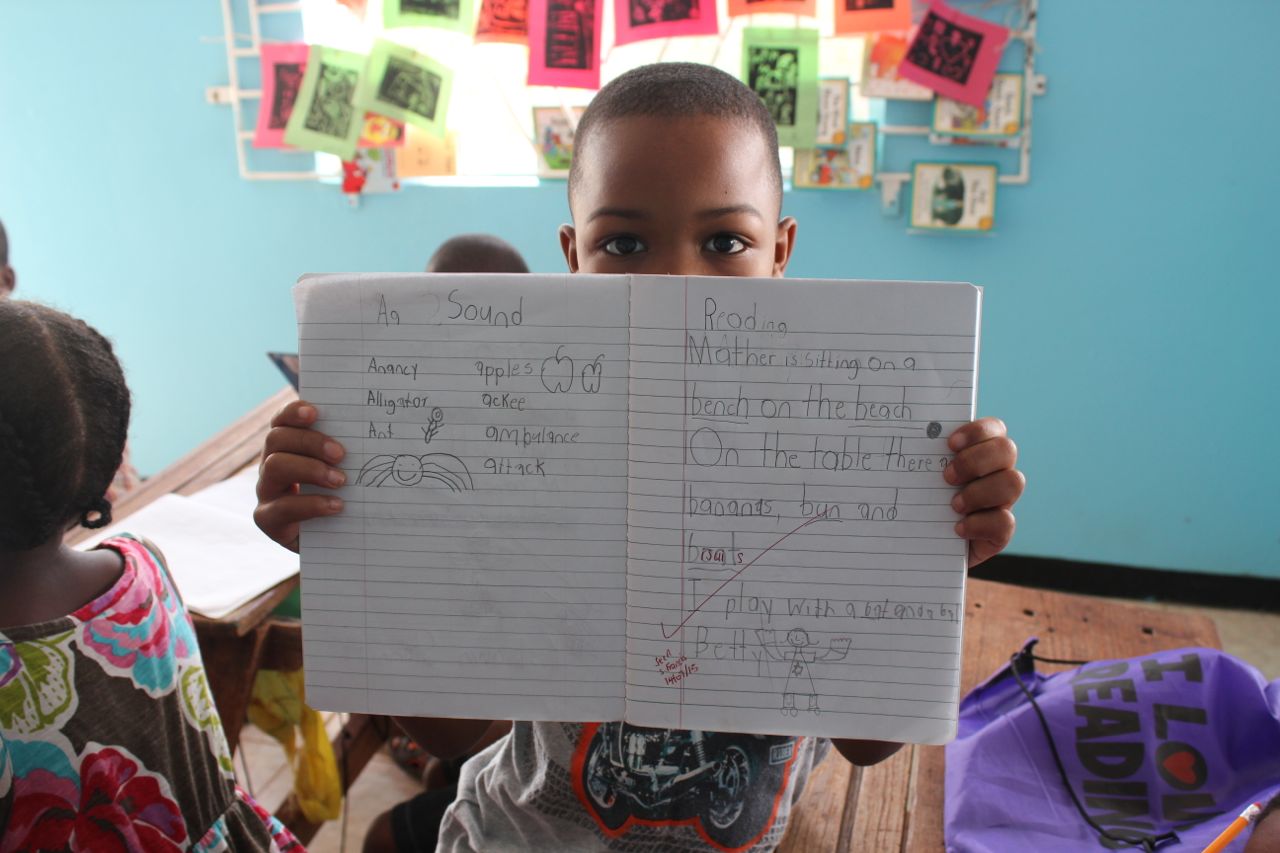 Aa Sound
Anancy apples
Alligator ackee
Ant ambulance
attack
Reading
Mather is sitting on a
bench on the beach
On the table there a
bananas, bun and
boats
I play with a bat and a bal
Betty
14/07/15
I LOV
READING